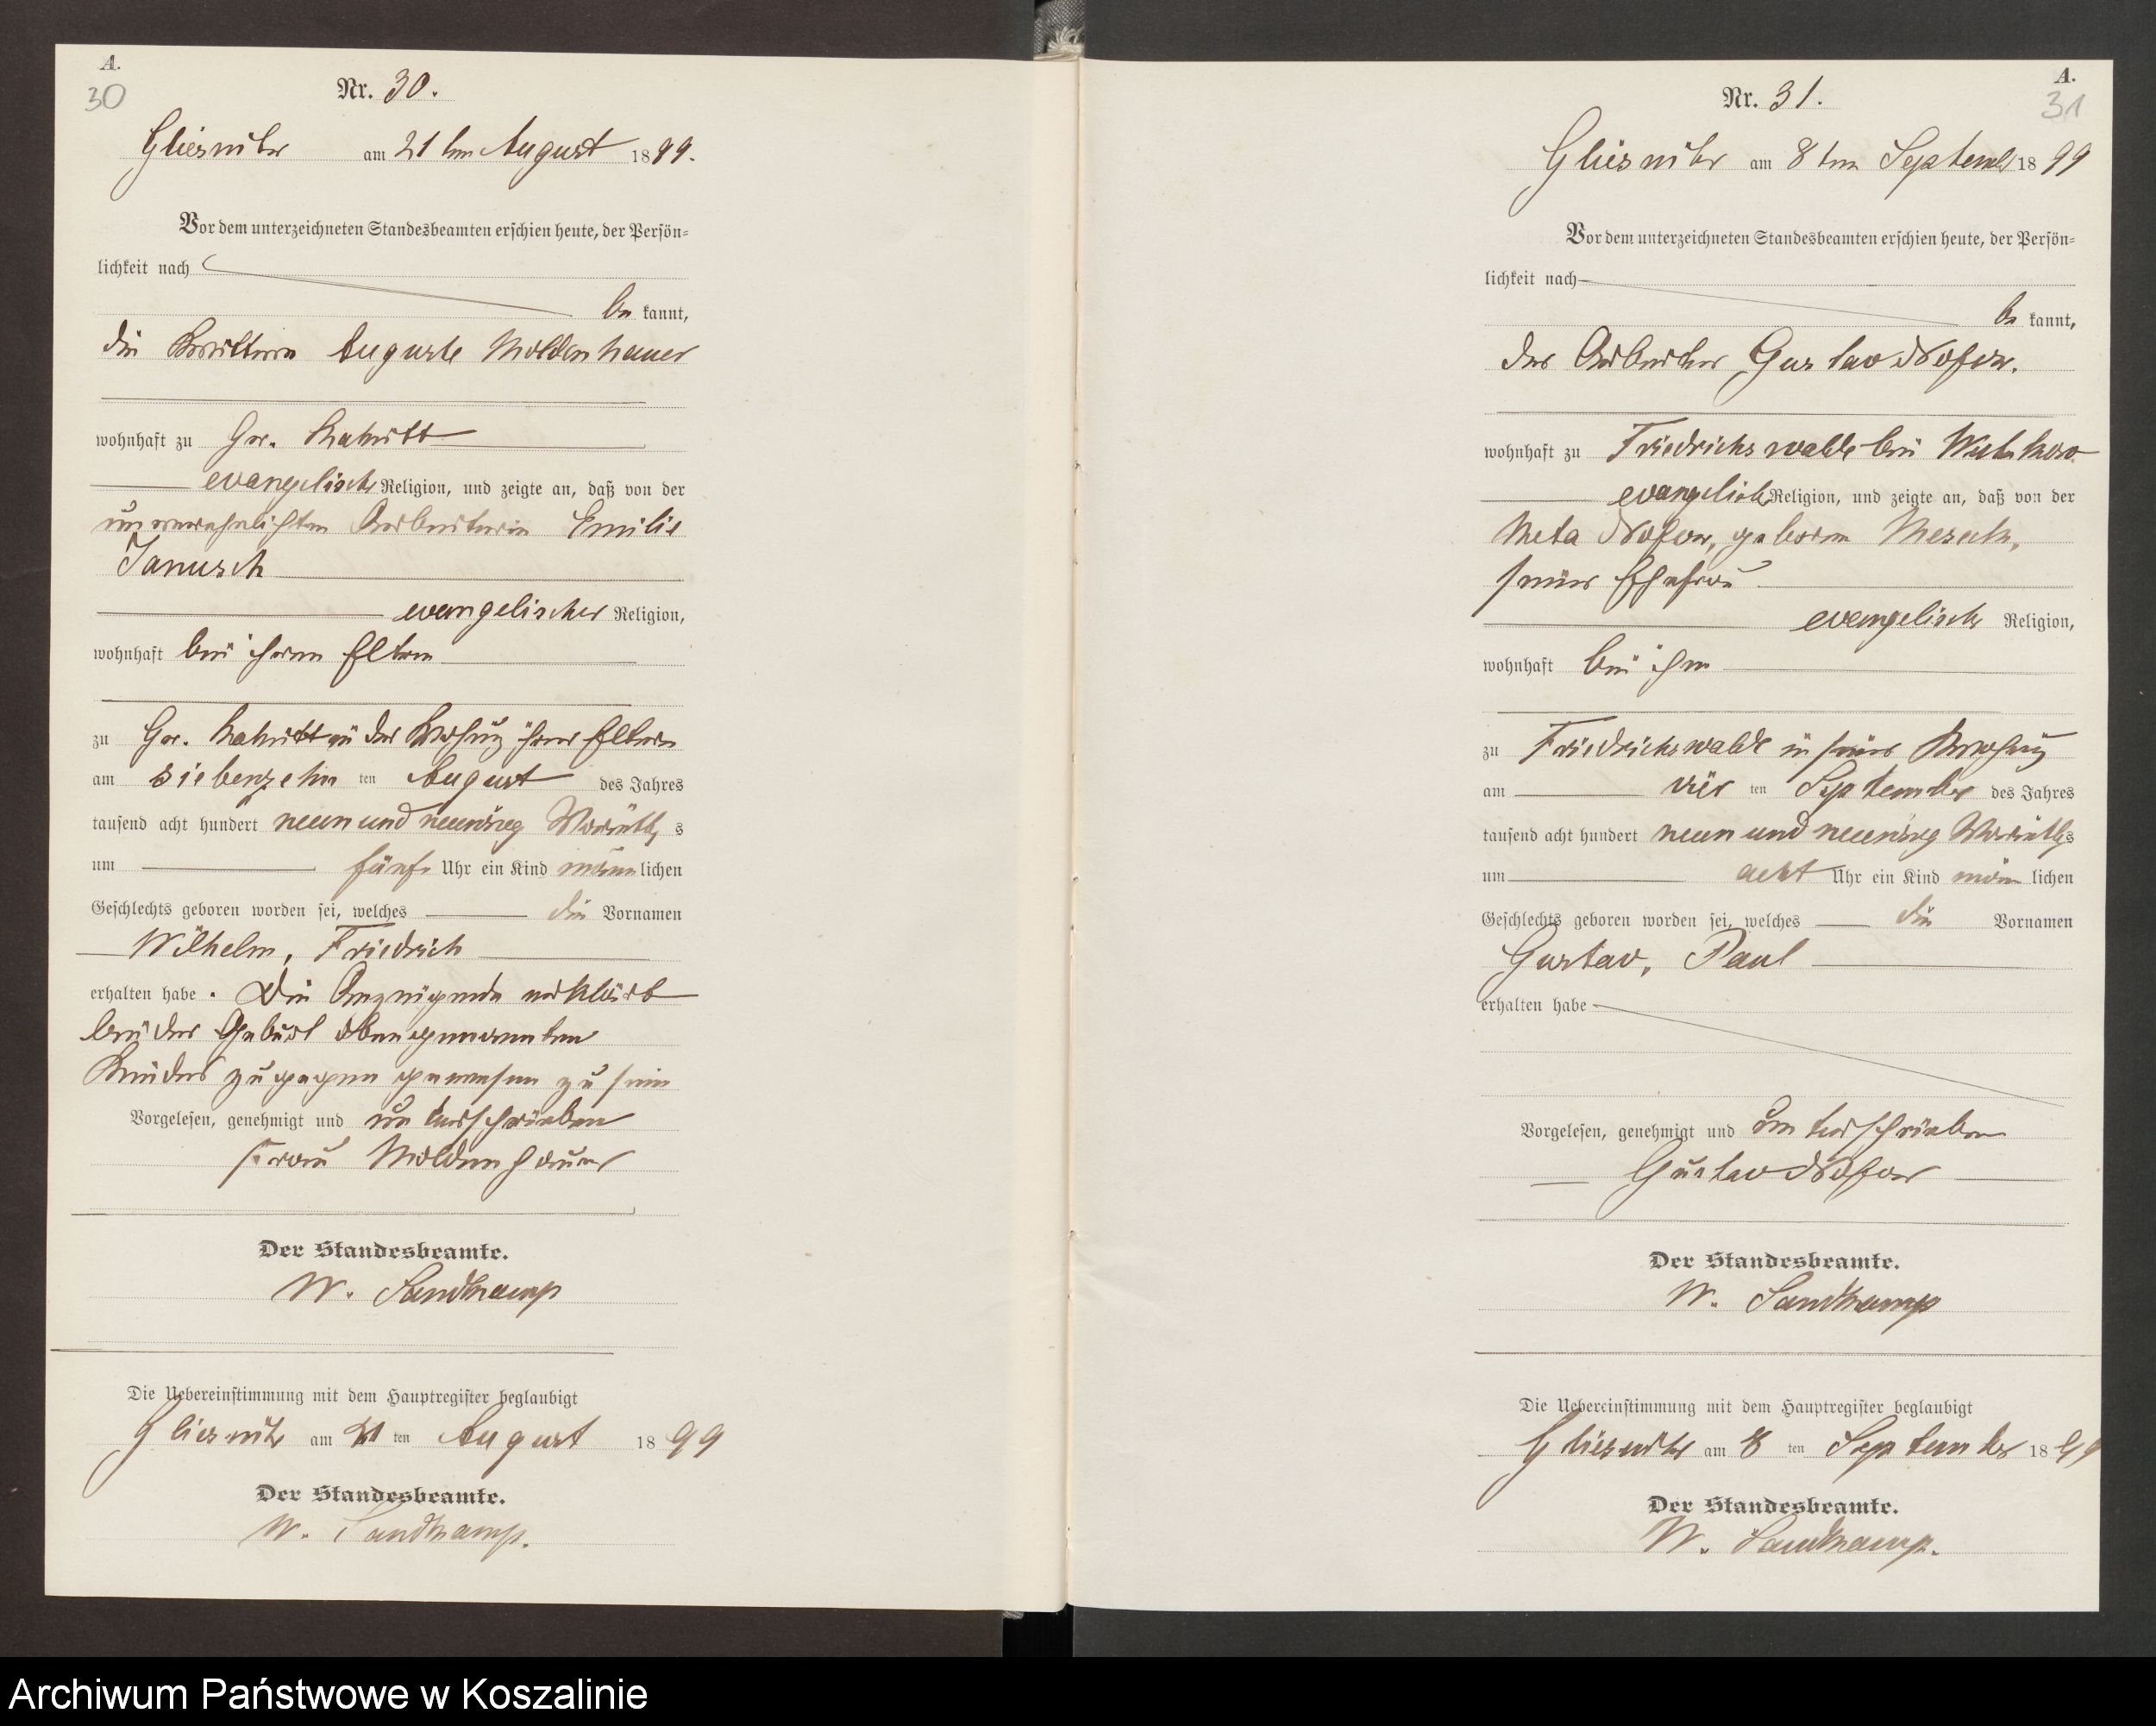 A.
30
Nr. 30.
Gliesnitz am 21ten August 1899.
Vor dem unterzeichneten Standesbeamten erschien heute, der Persön-
lichkeit nach
be kannt,
die Auguste Moldenhauer
wohnhaft zu Gr.
evangelischer Religion, und zeigte an, daß von der
unverehelichten Arbeiterin Emilie
Janusch
evangelischer Religion,
wohnhaft bei ihren Eltern
zu Gr. in der Wohnung ihrer Eltern
am siebenzehn ten August des Jahres
tausend acht hundert neun und neunzig Vormittags
um fünf Uhr ein Kind männlichen
Geschlechts geboren worden sei, welches die Vornamen
Wilhelm, Friedrich
erhalten habe. Die Anzeigende erklärt
bei der Geburt obengenannten
Kindes zugegen gewesen zu sein
Vorgelesen, genehmigt und unterschrieben
Frau Moldenhauer
Der Standesbeamte.
W. Sandkamp
Die Uebereinstimmung mit dem Hauptregister beglaubigt
Gliesnitz am 21 ten August 1899
Der Standesbeamte.
W. Sandkamp.
A.
31
Nr. 31.
Gliesnitz am 8ten September 1899
Vor dem unterzeichneten Standesbeamten erschien heute, der Persön-
lichkeit nach
be kannt,
der Arbeiter Gustav
wohnhaft zu Friedrichswalde bei
evangelischer Religion, und zeigte an, daß von der
Meta geborene
seiner Ehefrau
evangelischer Religion,
wohnhaft bei ihm
zu Friedrichswalde in seiner Wohnung
am vier ten September des Jahres
tausend acht hundert neun und neunzig Vormittags
um acht Uhr ein Kind männlichen
Geschlechts geboren worden sei, welches die Vornamen
Gustav, Paul
erhalten habe
Vorgelesen, genehmigt und unterschrieben
Gustav
Der Standesbeamte.
W. Sandkamp
Die Uebereinstimmung mit dem Hauptregister beglaubigt
Gliesnitz am 8 ten September 1899
Der Standesbeamte.
W. Sandkamp.
Archiwum Państwowe w Koszalinie